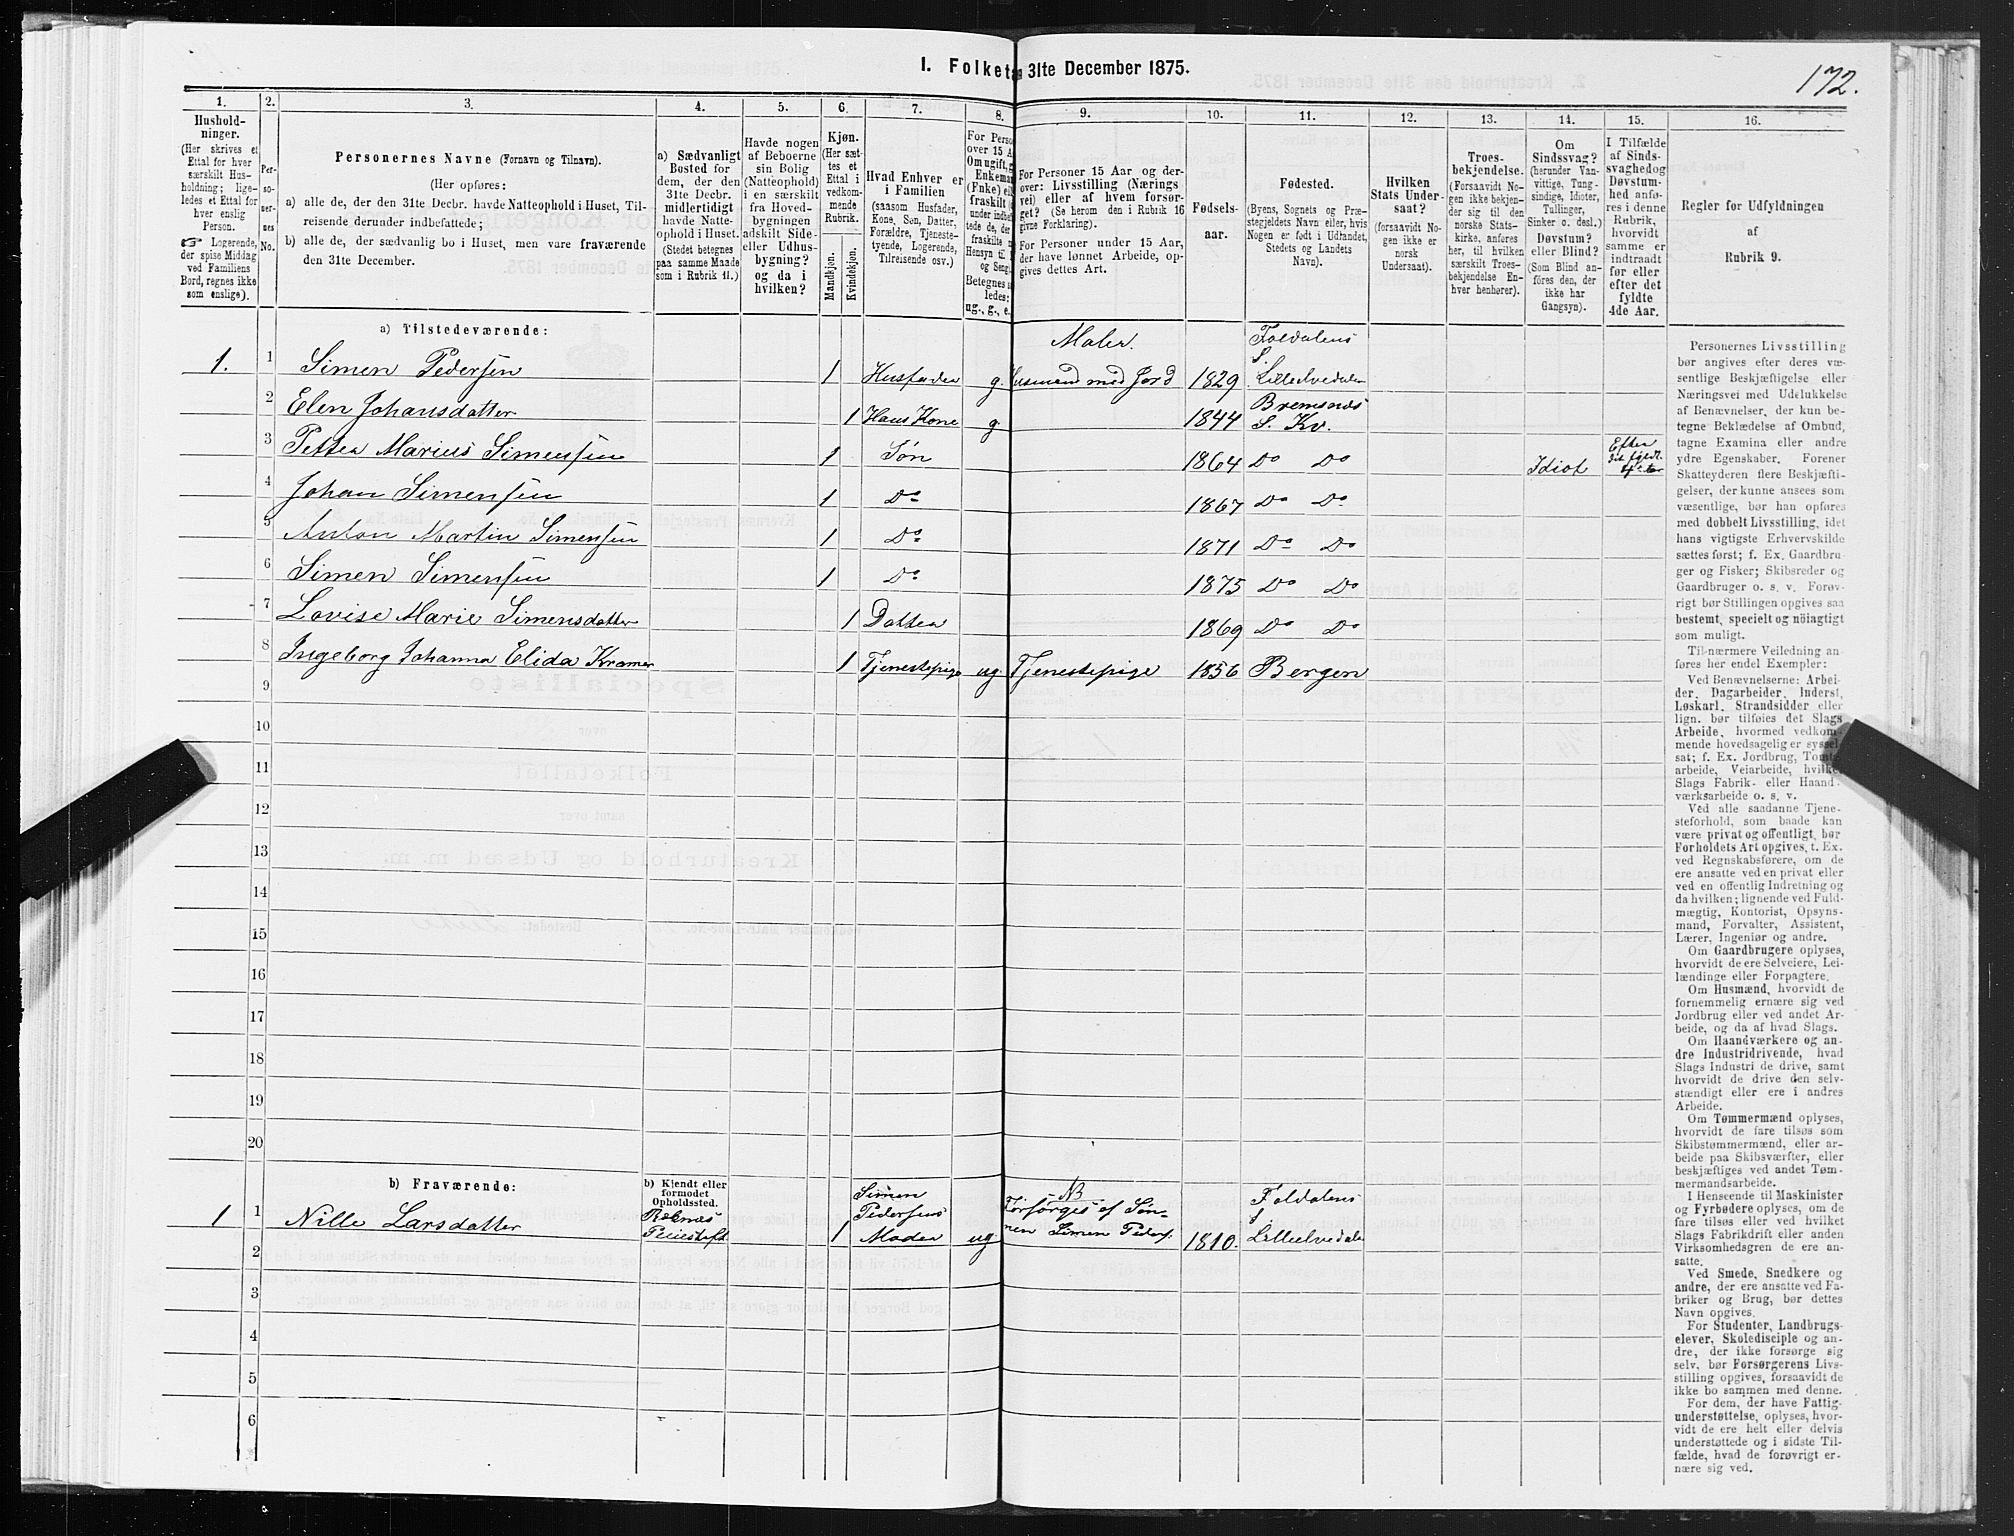 I. Folketa 31te December 1875.
172.
1.
2.
3.
4.
5.
6.
7.
8.
9.
10.
11.
12.
13.
14.
15.
16.
Hushold-
ninger.
(Her skrives et
Ettal for hver
særskilt Hus-
holdning; lige-
ledes et Ettal for
hver enslig
Person.
☞ Logerende,
der spise Middag
ved Familiens
Bord, regnes ikke
som enslige).
Per-
so-
ner-
nes
No.
Personernes Navne (Fornavn og Tilnavn).
(Her opføres:
a) alle de, der den 31te Decbr. havde Natteophold i Huset, Til-
reisende derunder indbefattede;
b) alle de, der sædvanlig bo i Huset, men vare fraværende
den 31te December.
a) Sædvanligt
Bosted for
dem, der den
31te Decbr.
midlertidigt
havde Natte-
ophold i Huset.
(Stedet betegnes
paa samme Maade
som i Rubrik 11.)
Havde nogen
af Beboerne
sin Bolig
(Natteophold)
i en særskilt
fra Hoved-
bygningen
adskilt Side-
eller Udhus-
bygning?
og da i
hvilken?
Kjøn.
(Her sæt-
tes et
Ettal i
vedkom-
mende
Rubrik.
Mandkjøn.
Kvindekjøn.
Hvad Enhver er
i Familien
(saasom Husfader,
Kone, Søn, Datter,
Forældre, Tjeneste-
tyende, Logerende,
Tilreisende osv.)
For Perso
over 15 A
Om ugift, g
Enkema
(Fnke) el
fraskilt
under indbef
tede de, der
fraskilte
Hensyn til
og Seng.
Betegnes s
ledes:
ug., g., e.
For Personer 15 Aar og der-
over: Livsstilling (Nærings
vei) eller af hvem forsør-
get? (Se herom den i Rubrik 16
givne Forklaring).
For Personer under 15 Aar,
der have lønnet Arbeide, op-
gives dettes Art.
Fødsels-
aar.
Fødested.
(Byens, Sognets og Præ-
stegjeldets Navn eller, hvis
Nogen er født i Udlandet,
Stedets og Landets
Navn).
Hvilken
Stats Under-
saat?
(forsaavidt No-
gen ikke er
norsk
Undersaat).
Troes-
bekjendelse.
(Forsaavidt No-
gen ikke bekjen-
der sig til den
norske Stats-
kirke, anføres
her, til hvilken
særskilt Troes-
bekjendelse En-
hver henhører).
Om
Sindssvag?
(herunder Van-
vittige, Tung-
sindige, Idioter,
Tullinger,
Sinker o. desl.)
Døvstum?
eller Blind?
(Som Blind an-
føres den, der
ikke har
Gangsyn).
I Tilfælde
af Sinds-
svaghed og
Døvstum-
hed anfø-
res i denne
Rubrik,
hvorvidt
samme er
indtraadt
før eller
efter det
fyldte
4de Aar.
Regler for Udfyldningen
af
Rubrik 9.
a) Tilstedeværende:
Maler. Foldalens
S.
1. 1 Simen Pedersen 1 Husfader g. Husmand med Jord 1829 Lilleelvedalen
2 Elen Johansdatter 1 Hans Kone g. 1844 Bremsnæs
S. Kv.
3 Petter Marius Simensen 1 Søn 1864 Do Do Idiot Efter
det fyldte
4de Aar
4 Johan Simensen 1 Do 1867 Do Do
5 Anton Martin Simensen 1 Do 1871 Do Do
6 Simen Simensen 1 Do 1875 Do Do
7 Lovise Marie Simensdatter 1 Datter 1869 Do Do
8 Ingeborg Johanna Elida Kramer 1 Tjenestepige ug Tjenestepige 1856 Bergen
9
10
11
12
13
14
15
16
17
18
19
20
b) Fraværende:
b) Kjendt eller
formodet
Opholdssted.
1 1 Nille Larsdatter Reknæs
Pleiestift 1 Simen
Pedersens
Moder ug. NB
Forsørges af Søn-
nen Simen Peders. 1810. Foldalens
S.
Lilleelvedalen
2
3
4
5
6
Personernes Livsstilling
bør angives efter deres væ-
sentlige Beskjæftigelse eller
Næringsvei med Udelukkelse
af Benævnelser, der kun be-
tegne Beklædelse af Ombud,
tagne Examina eller andre
ydre Egenskaber. Forener
Skatteyderen flere Beskjæfti-
gelser, der kunne ansees som
væsentlige, bør han opføres
med dobbelt Livsstilling, idet
hans vigtigste Erhvervskilde
sættes først; f. Ex. Gaardbru-
ger og Fisker; Skibsreder og
Gaardbruger o. s. v. Forøv-
rigt bør Stillingen opgives saa
bestemt, specielt og nöiagtigt
som muligt.
Til nærmere Veiledning an-
føres her endel Exempler:
Ved Benævnelserne: Arbei-
der, Dagarbeider, Inderst,
Løskarl, Strandsidder eller
lign. bør tilføies det Slags
Arbeide, hvormed vedkom-
mende hovedsagelig er syssel-
sat; f. Ex. Jordbrug, Tomte-
arbeide, Veiarbeide, hvilket
Slags Fabrik- eller Haand-
værksarbeide o. s. v.
Ved alle saadanne Tjene-
steforhold, som baade kan
være privat og offentligt, bør
Forholdets Art opgives, t. Ex.
ved Regnskabsførere, om de
ere ansatte ved en privat eller
ved en offentlig Indretning og
da hvilken; lignende ved Fuld-
mægtig, Kontorist, Opsyns-
mand, Forvalter, Assistent,
Lærer, Ingeniør og andre.
Om Gaardbrugere oplyses,
hvorvidt de ere Selveiere, Lei-
lændinge eller Forpagtere.
Om Husmænd, hvorvidt de
fornemmelig ernære sig ved
Jordbrug eller ved andet Ar-
beide, og da af hvad Slags.
Om Haandværkere og an-
dre Industridrivende, hvad
Slags Industri de drive, samt
hvorvidt de drive den selv-
stændigt eller ere i andres
Arbeide.
Om Tømmermænd oplyses,
hvorvidt de fare tilsøs som
Skibstømmermænd, eller ar-
beide paa Skibsværfter, eller
beskjæftiges ved andet Tøm-
mermandsarbeide.
I Henseende til Maskinister
og Fyrbødere oplyses, om de
fare tilsøs eller ved hvilket
Slags Fabrikdrift eller anden
Virksomhedsgren de ere an-
satte.
Ved Smede, Snedkere og
andre, der ere ansatte ved Fa-
briker og Brug, bør dettes
Navn opgives.
For Studenter, Landbrugs-
elever, Skoledisciple og an-
dre, der ikke forsørge sig
selv, bør Forsørgerens Livs-
stilling opgives, forsaavidt de
ikke bo sammen med denne.
For dem, der have Fattig-
understøttelse, oplyses, hvor-
vidt de ere helt eller delvis
understøttede og i sidste Til-
fælde, hvad de forøvrigt er-
nære sig ved.